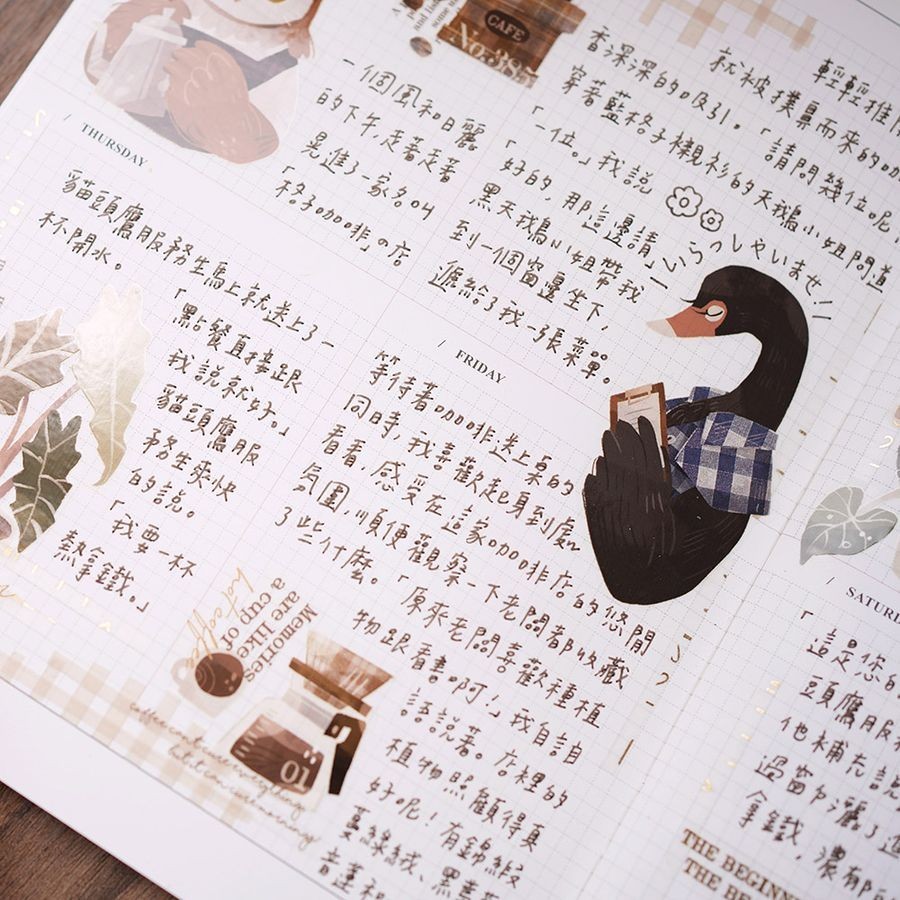 一個風和日麗
的下午，走著走著
晃進了一家名叫
「格子咖啡」の店
CAFE
No.385
輕輕推
就被撲鼻而來的咖
香深深的吸引。「請問幾位呢
穿著藍格子襯衫的天鵝小姐問道
「一位。」我說
「好的，那這邊請」
黑天鵝小姐帶我
到一個窗邊坐下，
遞給了我一張菜單。
いらっしゃいませ！
/ THURSDAY
貓頭鷹服務生馬上就送上了一
杯開水。
「點餐直接跟
我說就好。」
貓頭鷹服
務生爽快
的說。
「我要一杯
熱拿鐵。」
hot coffee
Memories
are like
a cup of
01
/ FRIDAY
等待著咖啡送上桌的
同時，我喜歡起身到處
看看，感受在這家咖啡店的悠閒
氛圍，順便觀察一下老闆都收藏
了些什麼。「原來老闆喜歡種植
物跟看書啊！」我自言自
語說著。店裡的
植物照顧得真
好呢！有錦緞
蔓綠絨、黑
/ SATUR
「這是您的
頭鷹服
他補充說
過窗戶灑了進
拿鐵，濃郁
THE BEGINN
THE BE